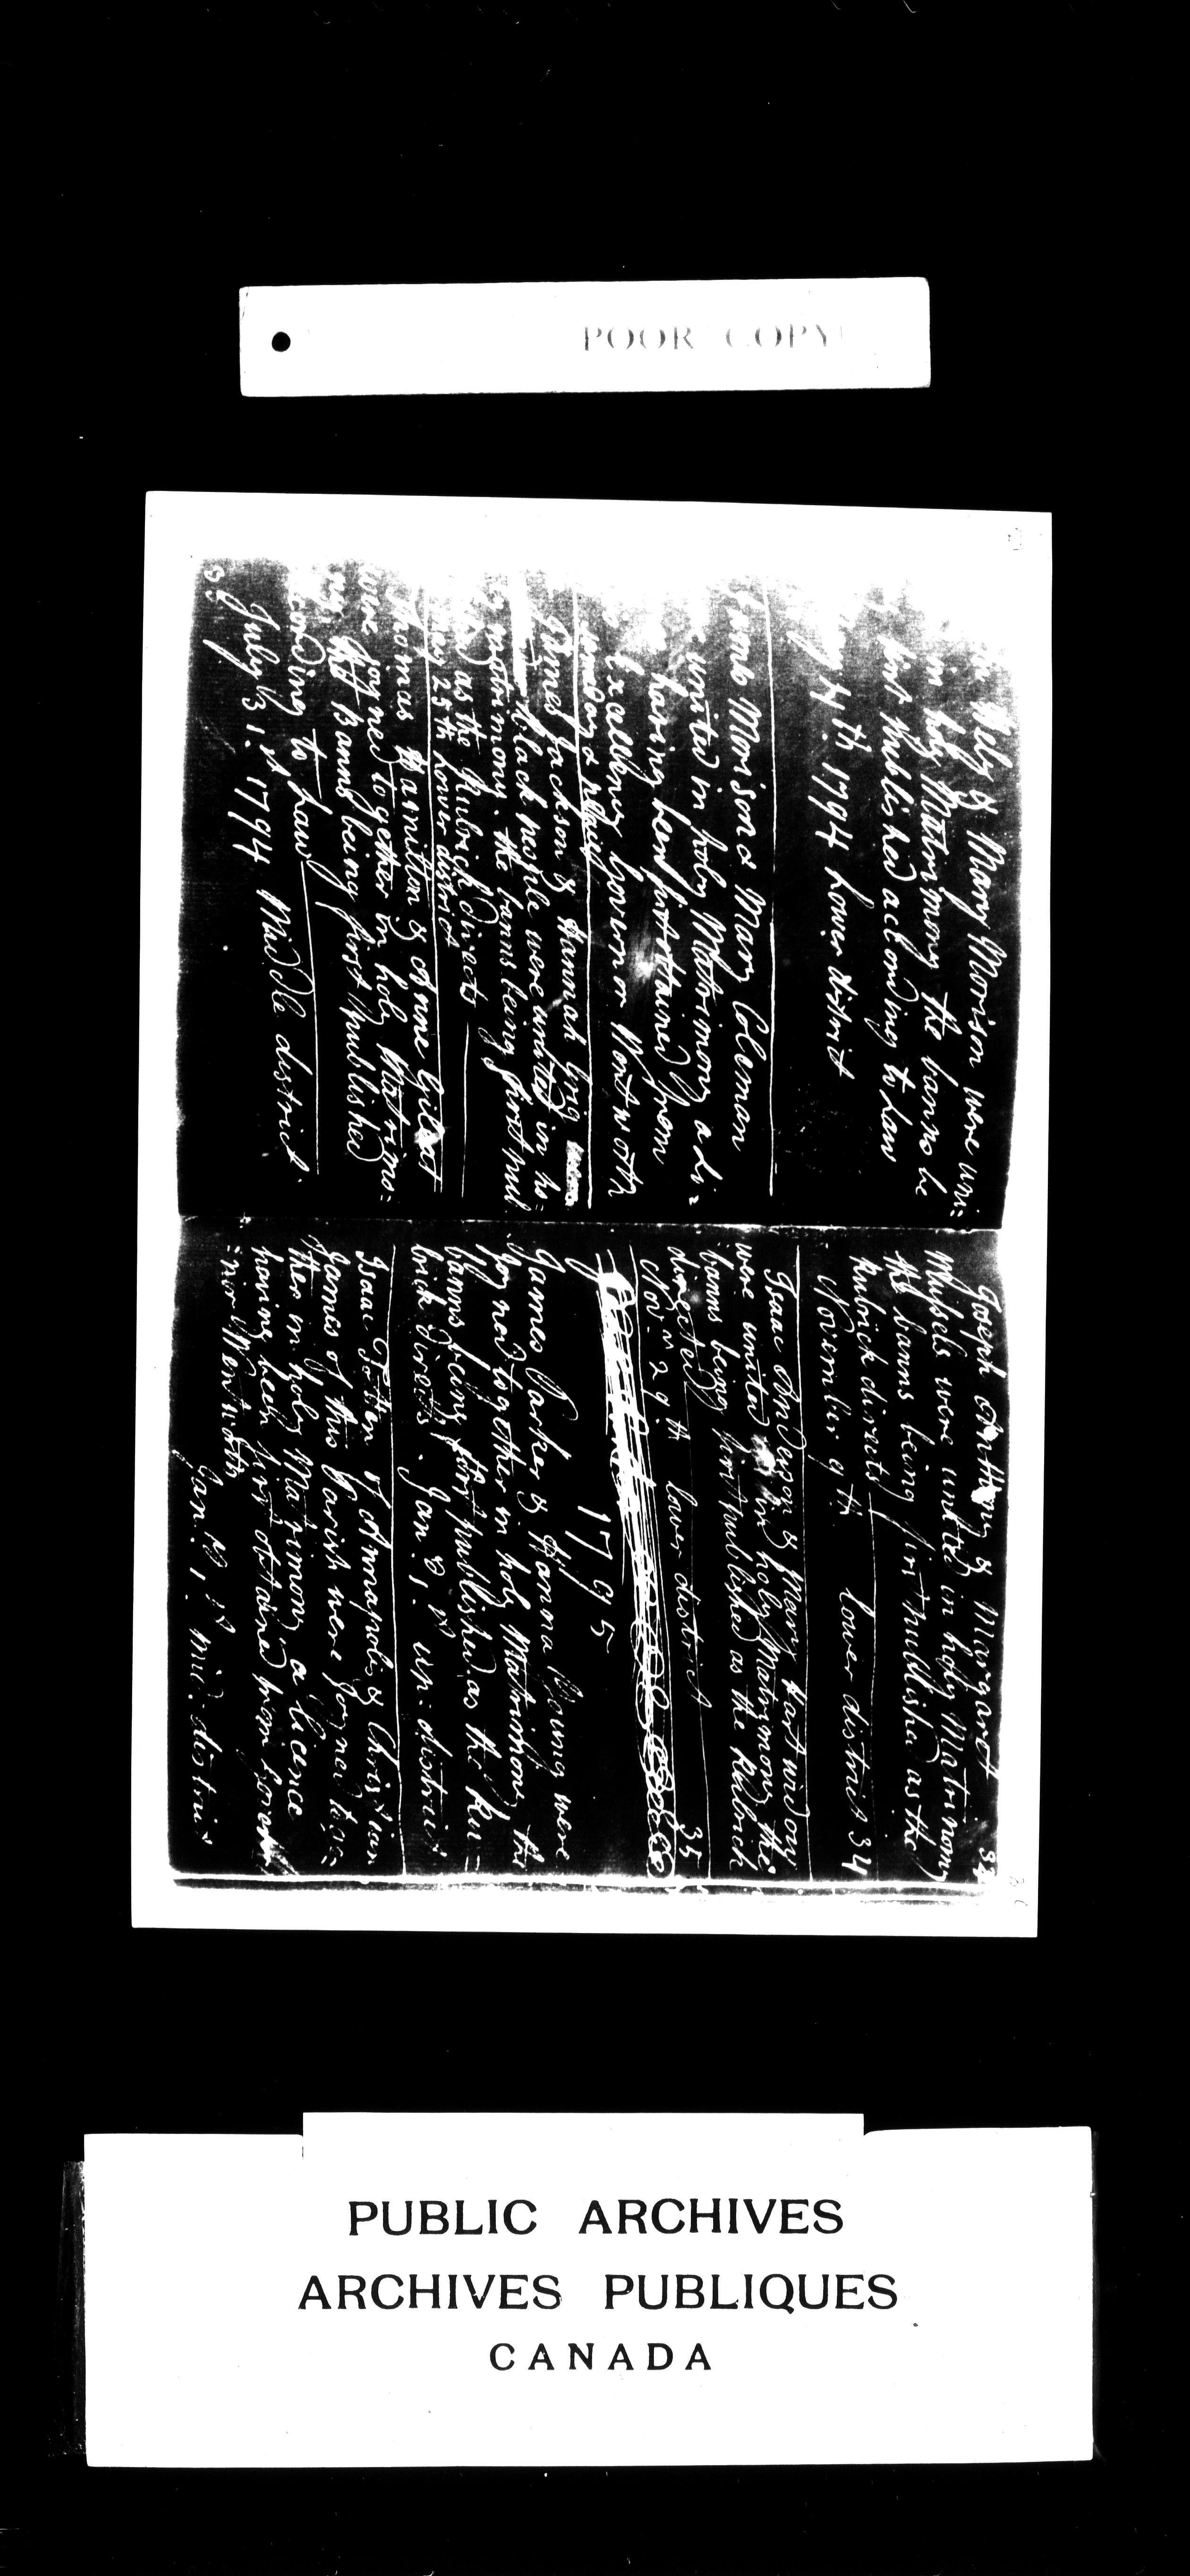 POOR COPY
Wely & Mary Morison were uni=
in holy Matrimony the banns be
first published according to Law
July 4th 1794 Lower district
Morison & Mary Coleman
united in holy Matrimony a li=
having been first obtained from
Excellency Governor Wentworth
James Jackson & Hannah
black people were united in ho=
ly matrimony. the banns being first pub
as the Rubrick directs
25th Lower district
Thomas Hamilton & Anne Gilcat
were joyned together in holy Matrimo=
ny the Banns being first published
according to Law
July 31.st 1794 Middle district.
Joseph Anthony & Margaret
were united in holy Matrimony
the banns being first published as the
Rubrick directs
November 9th lower district 34
Isaac Anderson & Mary Hart widow
were united in holy Matrimony the
banns being first published as the Rubrick
directed
Novm 29th lower district 35
1795
James Parker & Hanna Young were
joyned together in holy Matrimony the
banns being first published as the Ru=
brick directs. Jan. 1st up. district
Isaac Totten of Annapolis & Christian
James of this parish were joyned toge=
ther in holy Matrimony a licence
having been first obtained from Gover
=nor Wentworth
Jan. 1st mid: district
PUBLIC ARCHIVES
ARCHIVES PUBLIQUES
CANADA